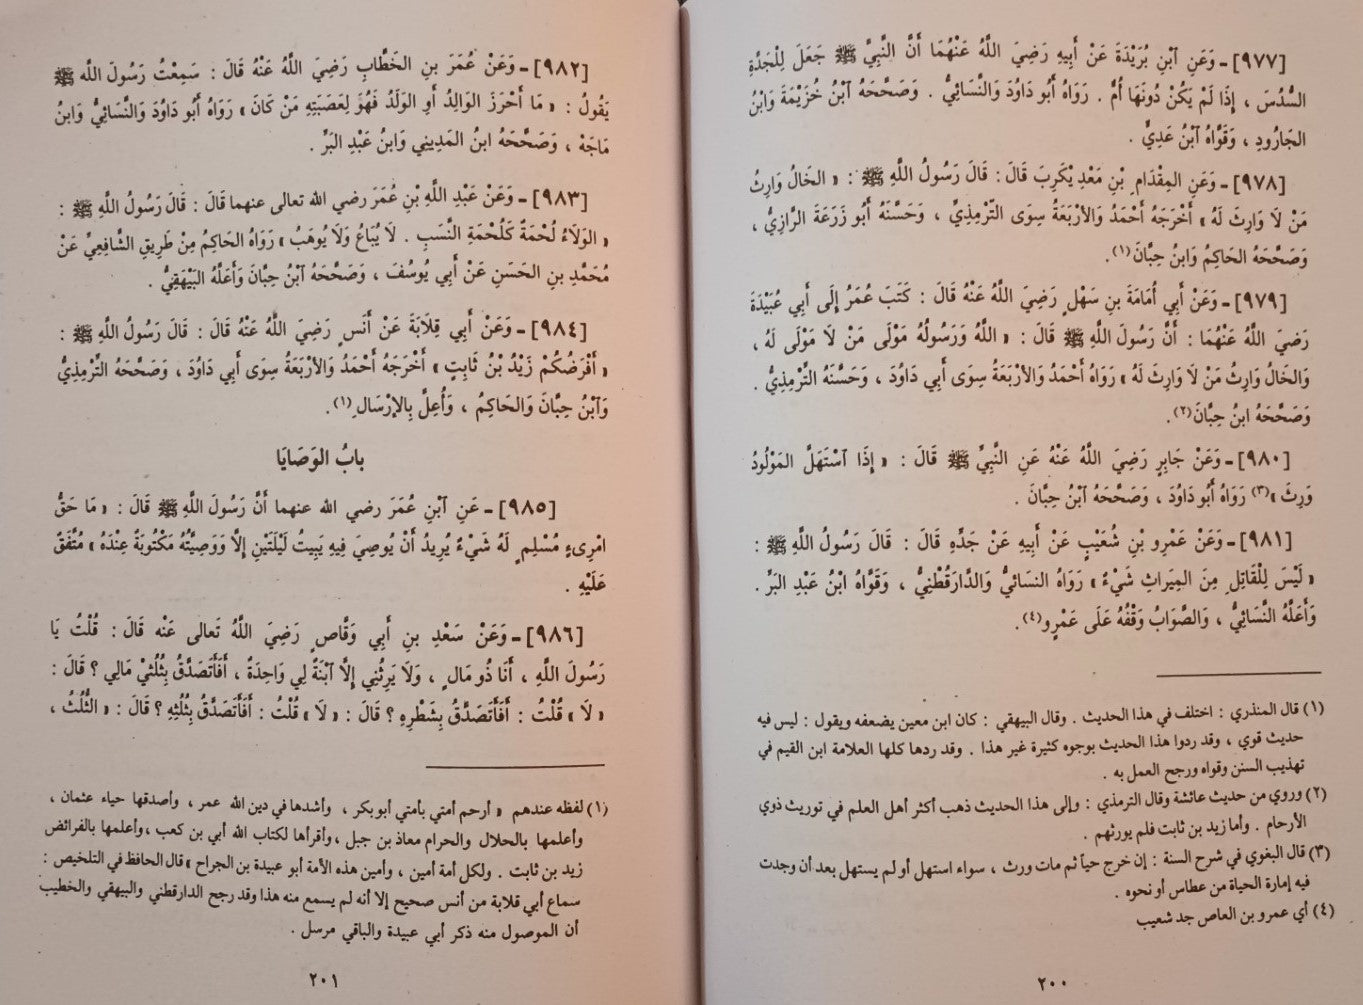 [٩٧٧] ـ وَعَنِ ٱبْنِ بُرَيْدَةَ عَنْ أَبِيهِ رَضِيَ اللَّهُ عَنْهُمَا أَنَّ النَّبِيَّ ﷺ جَعَلَ لِلْجَدَّةِ
السُّدُسَ ، إِذَا لَمْ يَكُنْ دُونَهَا أُمٌّ . رَوَاهُ أَبُو دَاوُدَ وَالنَّسَائِيُّ . وَصَحَّحَهُ ٱبْنُ خُزَيْمَةَ وَابْنُ
الجَارُودِ ، وَقَوَّاهُ ٱبْنُ عَدِيٍّ .
[٩٧٨] ـ وَعَنِ المِقْدَامِ بْنِ مَعْدِ يكَرِبَ قَالَ : قَالَ رَسُولُ اللَّهِ ﷺ : « الخَالُ وَارِثُ
مَنْ لَا وَارِثَ لَهُ » أَخْرَجَهُ أَحْمَدُ وَالأَرْبَعَةُ سِوَى التِّرْمِذِيِّ ، وَحَسَّنَهُ أَبُو زَرَعَةَ الرَّازِيُّ ،
وَصَحَّحَهُ الحَاكِمُ وَابنُ حِبَّانَ(١).
[٩٧٩] ـ وَعَنْ أَبِي أُمَامَةَ بنِ سَهْلٍ رَضِيَ اللَّهُ عَنْهُ قَالَ : كَتَبَ عُمَرُ إِلَى أَبِي عُبَيْدَةَ
رَضِيَ اللَّهُ عَنْهُمَا : أَنَّ رَسُولَ اللَّهِ ﷺ قَالَ : « اللَّهُ وَرَسُولُهُ مَوْلَى مَنْ لَا مَوْلَى لَهُ ،
وَالخَالُ وَارِثُ مَنْ لَا وَارِثَ لَهُ » رَوَاهُ أَحْمَدُ وَالأَرْبَعَةُ سِوَى أَبِي دَاوُدَ ، وَحَسَّنَهُ التِّرْمِذِيُّ .
وَصَحَّحَهُ ابنُ حِبَّانَ(٢).
[٩٨٠] ـ وَعَنْ جَابِرٍ رَضِيَ اللَّهُ عَنْهُ عَنِ النَّبِيِّ ﷺ قَالَ : « إِذَا ٱسْتَهَلَّ المَوْلُودُ
وَرِثَ »(٣) رَوَاهُ أَبُو دَاوُدَ ، وَصَحَّحَهُ ٱبْنُ حِبَّانَ .
[٩٨١] ـ وَعَنْ عَمْرِو بنِ شُعَيْبٍ عَنْ أَبِيهِ عَنْ جَدِّهِ قَالَ : قَالَ رَسُولُ اللَّهِ ﷺ :
« لَيْسَ لِلْقَاتِلِ مِنَ المِيَراثِ شَيْءٌ » رَوَاهُ النسَائِيُّ وَالدَّارَقُطْنِيُّ ، وَقَوَّاهُ ابْنُ عَبْدِ البَرِّ .
وَأَعَلَّهُ النَّسَائِيُّ ، وَالصَّوَابُ وَقْفُهُ عَلَى عَمْرٍو(٤).
(١) قال المنذري : اختلف في هذا الحديث . وقال البيهقي : كان ابن معين يضعفه ويقول : ليس فيه
حديث قوي ، وقد ردوا هذا الحديث بوجوه كثيرة غير هذا . وقد ردها كلها العلامة ابن القيم في
تهذيب السنن وقواه ورجح العمل به .
(٢) وروي من حديث عائشة وقال الترمذي : وإلى هذا الحديث ذهب أكثر أهل العلم في توريث ذوي
الأرحام . وأما زيد بن ثابت فلم يورثهم .
(٣) قال البغوي في شرح السنة : إن خرج حياً ثم مات ورث ، سواء استهل أو لم يستهل بعد أن وجدت
فيه إمارة الحياة من عطاس أو نحوه .
(٤) أي عمرو بن العاص جد شعيب
٢٠٠
[٩٨٢] ـ وَعَنْ عُمَرَ بنِ الخَطَّابِ رَضِيَ اللَّهُ عَنْهُ قَالَ : سَمِعْتُ رَسُولَ اللَّهِ ﷺ
يَقُولُ : « مَا أَحْرَزَ الوَالِدُ أَوِ الوَلَدُ فَهُوَ لِعَصَبَتِهِ مَنْ كَانَ » رَوَاهُ أَبُو دَاوُدَ وَالنَّسَائِيُّ وَابنُ
مَاجَهْ ، وَصَحَّحَهُ ابنُ المَدِينِي وَابنُ عَبْدِ البَرِّ .
[٩٨٣] ـ وَعَنْ عَبْدِ اللَّهِ بْنِ عُمَرَ رضي الله تعالى عنهما قَالَ : قَالَ رَسُولُ اللَّهِ ﷺ :
« الوَلَاءُ لُحْمَةٌ كَلُحْمَةِ النَّسَبِ . لَا يُبَاعُ وَلَا يُوهَبُ » رَوَاهُ الحَاكِمُ مِنْ طَرِيقِ الشَّافِعِيِّ عَنْ
مُحَمَّدِ بنِ الحَسَنِ عَنْ أَبِي يُوسُفَ ، وَصَحَّحَهُ ٱبْنُ حِبَّانَ وَأَعَلَّهُ البَيْهَقِيُّ .
[٩٨٤] ـ وَعَنْ أَبِي قِلَابَةَ عَنْ أَنَسٍ رَضِيَ اللَّهُ عَنْهُ قَالَ : قَالَ رَسُولُ اللَّهِ ﷺ :
« أَفْرَضُكُمْ زَيْدُ بْنُ ثَابِتٍ » أَخْرَجَهُ أَحْمَدُ وَالأَرْبَعَةُ سِوَى أَبِي دَاوُدَ ، وَصَحَّحَهُ التِّرْمِذِيُّ
وَٱبْنُ حِبَّانَ وَالحَاكِمُ ، وَأُعِلَّ بِالإِرْسَالِ(١).
بابُ الوَصَايَا
[٩٨٥] ـ عَنِ ٱبْنِ عُمَرَ رضي الله عنهما أَنَّ رَسُولَ اللَّهِ ﷺ قَالَ : « مَا حَقُّ
امْرِىءٍ مُسْلِمٍ لَهُ شَيْءٌ يُرِيدُ أَنْ يُوصِيَ فِيهِ يَبِيتُ لَيْلَتَيْنِ إِلَّا وَوَصِيَّتُهُ مَكْتُوبَةٌ عِنْدَهُ » مُتَّفَقٌ
عَلَيْهِ .
[٩٨٦] ـ وَعَنْ سَعْدِ بنِ أَبِي وَقَّاصٍ رَضِيَ اللَّهُ تَعالى عَنْهُ قَالَ : قُلْتُ يَا
رَسُولَ اللَّهِ ، أَنَا ذُو مَالٍ ، وَلَا يَرِثُنِي إِلَّا ٱبْنَةٌ لِي وَاحِدَةٌ ، أَفَأَتَصَدَّقُ بِثُلُثَيْ مَالِي ؟ قَالَ :
« لَا » قُلْتُ : أَفَأَتَصَدَّقُ بِشَطْرِهِ ؟ قَالَ : « لَا » قُلْتُ : أَفَأَتَصَدَّقُ بِثُلُثِهِ ؟ قَالَ : « الثُّلُثُ ،
(١) لفظه عندهم « أرحم أمتي بأمتي أبو بكر ، وأشدها في دين الله عمر ، وأصدقها حياء عثمان ،
وأعلمها بالحلال والحرام معاذ بن جبل ، وأقرأها لكتاب الله أبي بن كعب ، وأعلمها بالفرائض
زيد بن ثابت . ولكل أمة أمين ، وأمين هذه الأمة أبو عبيدة بن الجراح » قال الحافظ في التلخيص :
سماع أبي قلابة من أنس صحيح إلا أنه لم يسمع منه هذا وقد رجح الدارقطني والبيهقي والخطيب
أن الموصول منه ذكر أبي عبيدة والباقي مرسل .
٢٠١